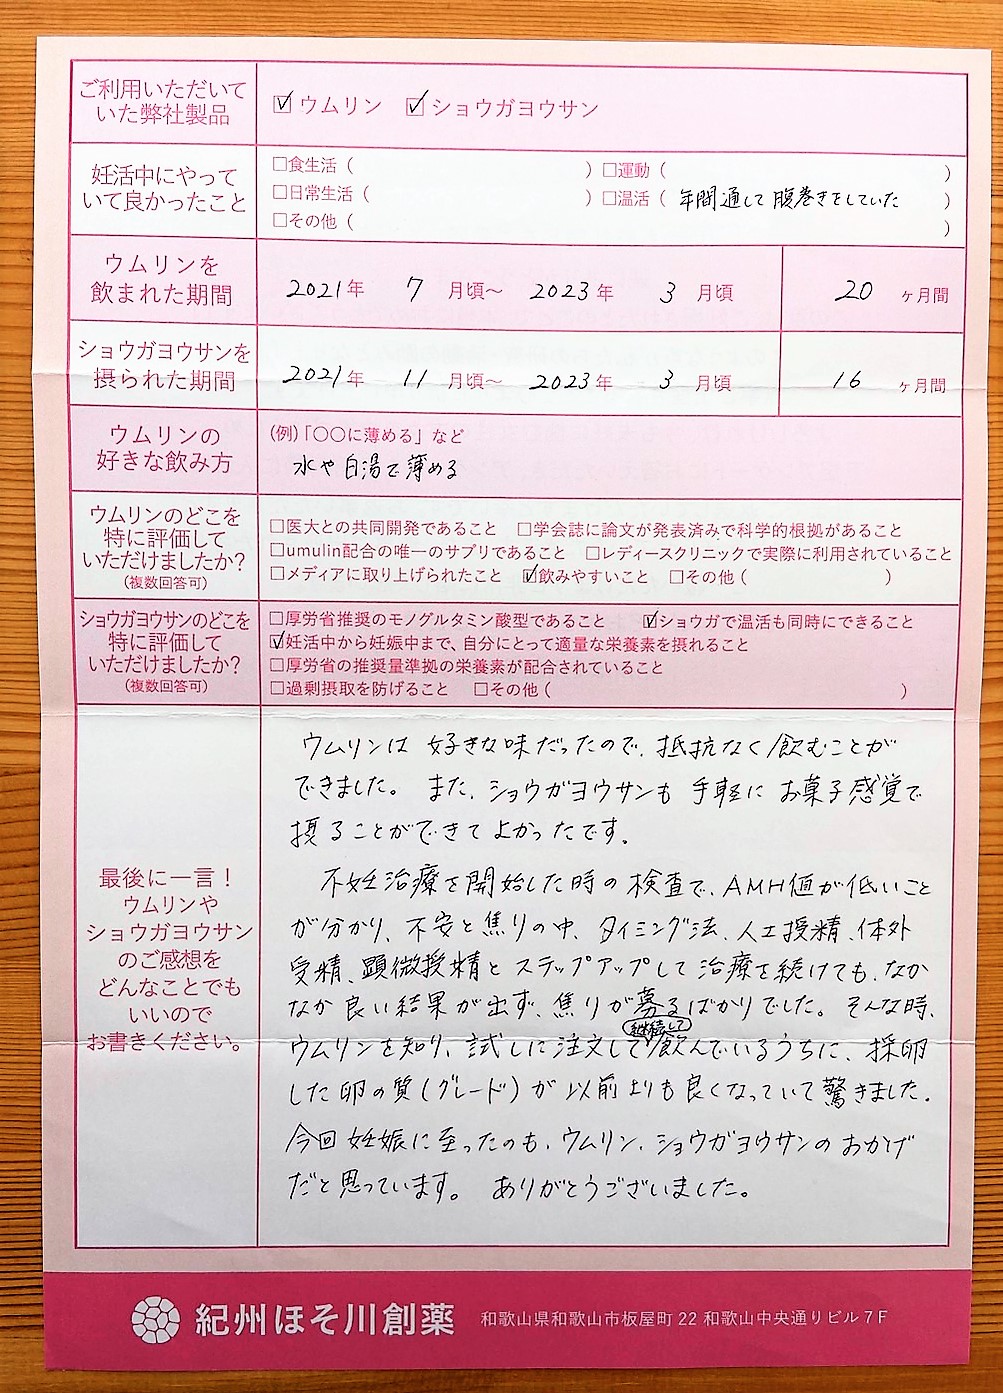 ご利用いただいて
いた弊社製品
☑ウムリン ☑ショウガヨウサン
妊活中にやって
いて良かったこと
□食生活( ) □運動( )
□日常生活( ) □温活( 年間通して腹巻きをしていた )
□その他( )
ウムリンを
飲まれた期間
2021年 7 月頃〜 2023年 3 月頃 20 ヶ月間
ショウガヨウサンを
摂られた期間
2021年 11 月頃〜 2023年 3 月頃 16 ヶ月間
ウムリンの
好きな飲み方
(例)「〇〇に薄める」など
水や白湯で薄める
ウムリンのどこを
特に評価して
いただけましたか?
(複数回答可)
□医大との共同開発であること □学会誌に論文が発表済みで科学的根拠があること
□umulin配合の唯一のサプリであること □レディースクリニックで実際に利用されていること
□メディアに取り上げられたこと ☑飲みやすいこと □その他( )
ショウガヨウサンのどこを
特に評価して
いただけましたか?
(複数回答可)
□厚労省推奨のモノグルタミン酸型であること ☑ショウガで温活も同時にできること
☑妊活中から妊娠中まで、自分にとって適量な栄養素を摂れること
□厚労省の推奨量準拠の栄養素が配合されていること
□過剰摂取を防げること □その他( )
最後に一言！
ウムリンや
ショウガヨウサン
のご感想を
どんなことでも
いいので
お書きください。
ウムリンは好きな味だったので、抵抗なく飲むことが
できました。また、ショウガヨウサンも手軽にお菓子感覚で
摂ることができてよかったです。
不妊治療を開始した時の検査で、AMH値が低いこと
が分かり、不安と焦りの中、タイミング法、人工授精、体外
受精、顕微授精とステップアップして治療を続けても、なか
なか良い結果が出ず、焦りが募るばかりでした。そんな時、
ウムリンを知り、試しに注文して継続して飲んでいるうちに、採卵
した卵の質(グレード)が以前よりも良くなっていて驚きました。
今回妊娠に至ったのも、ウムリン、ショウガヨウサンのおかげ
だと思っています。ありがとうございました。
紀州ほそ川創薬 和歌山県和歌山市板屋町22和歌山中央通りビル7F